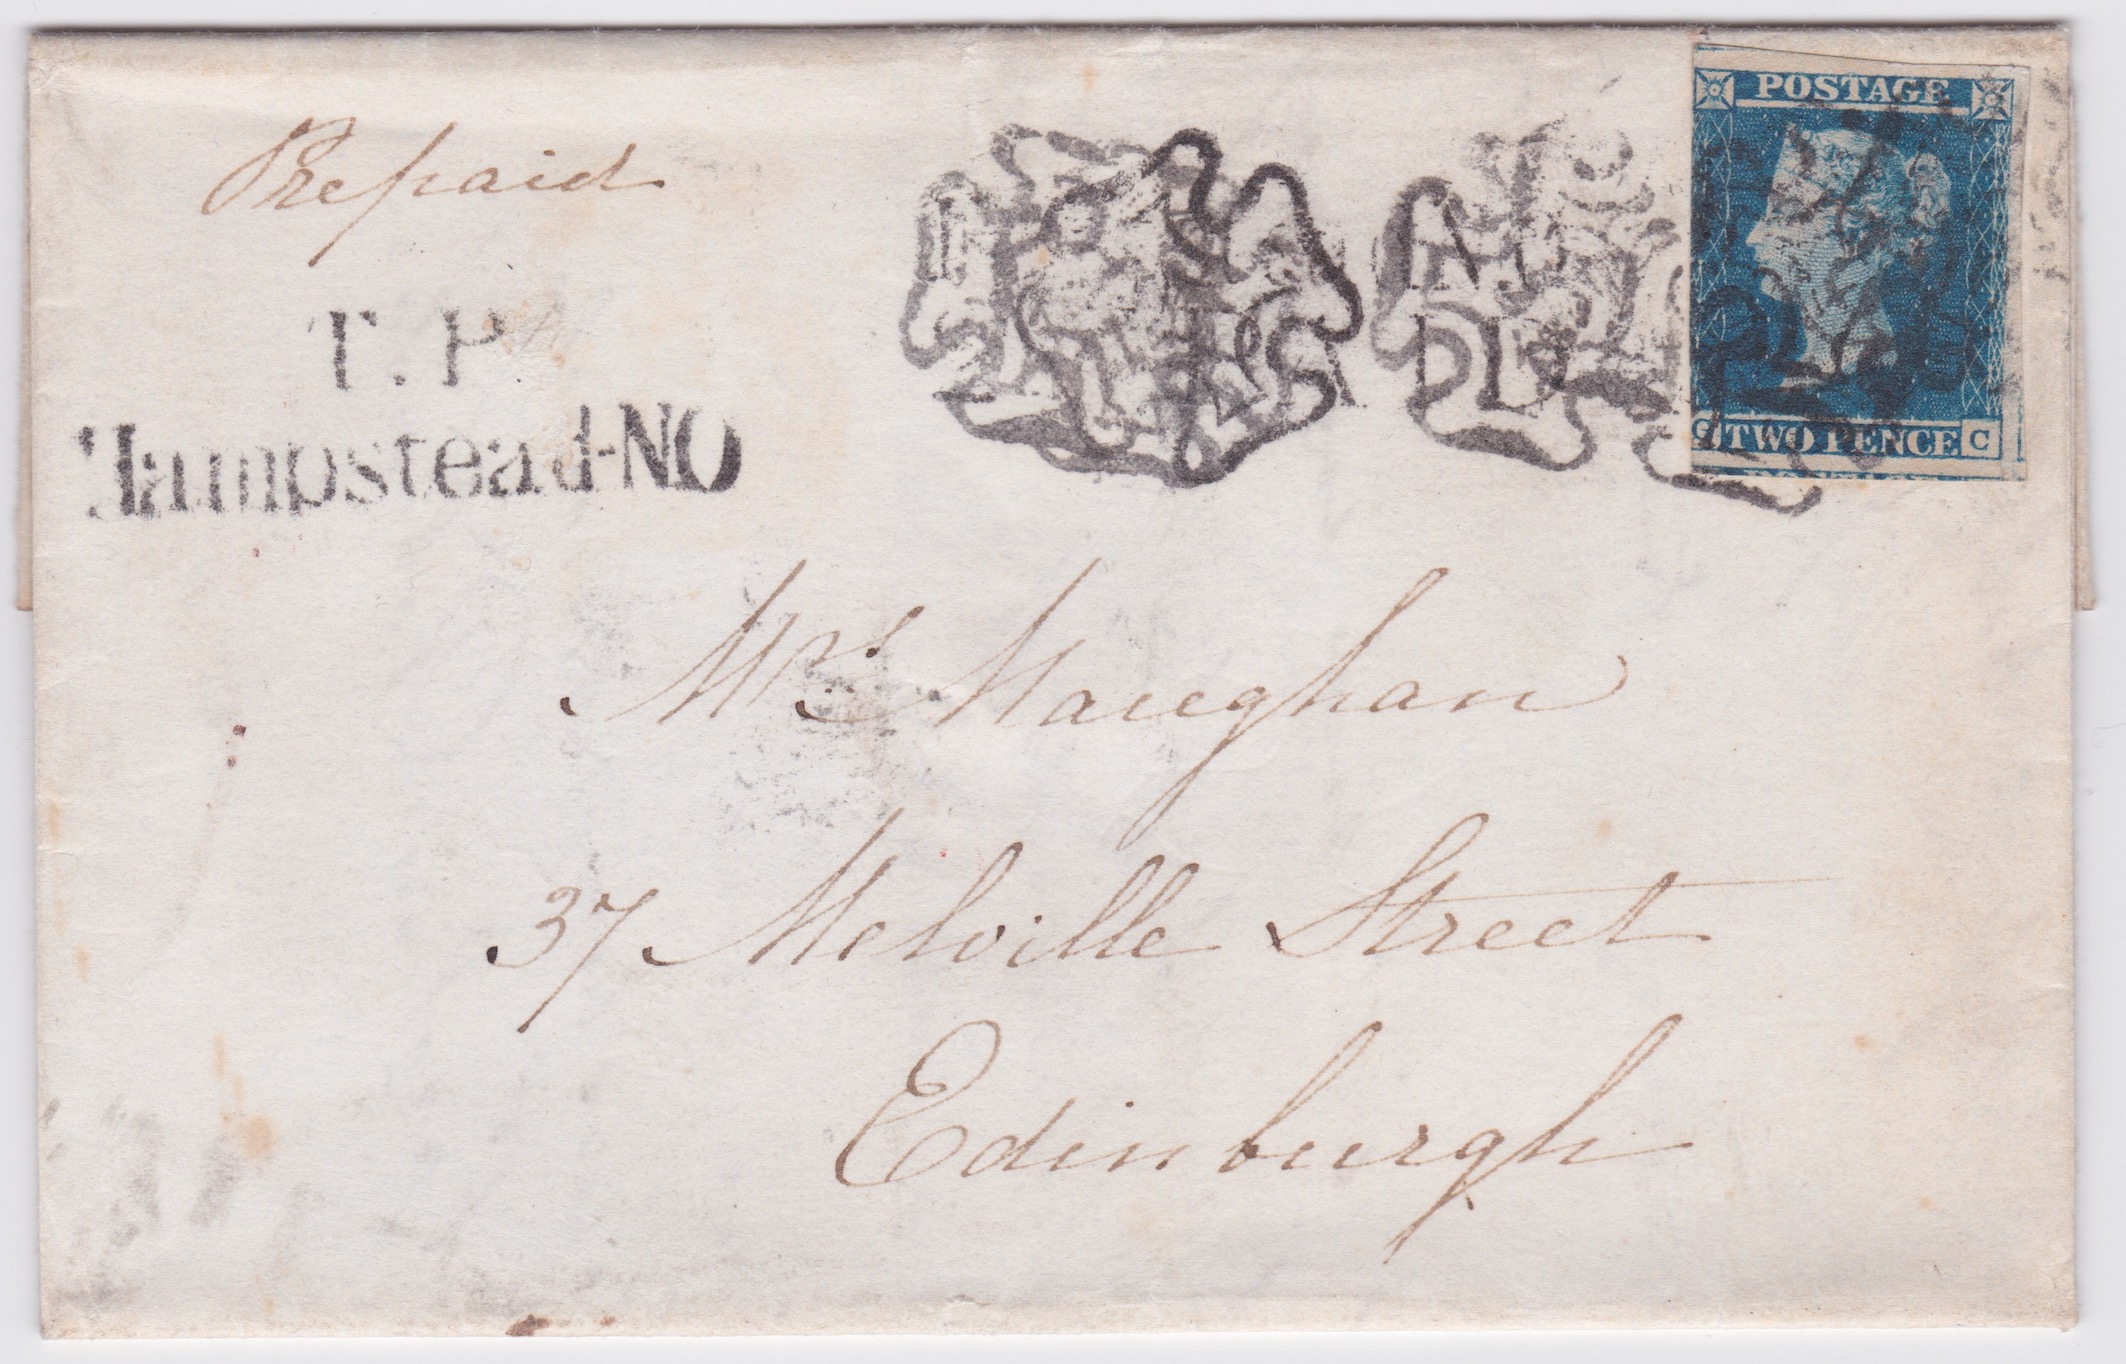 POSTAGE
Prepaid
T.P
Hampstead-NO
G TWO PENCE C
Mrs Maughan
37 Melville Street
Edinburgh